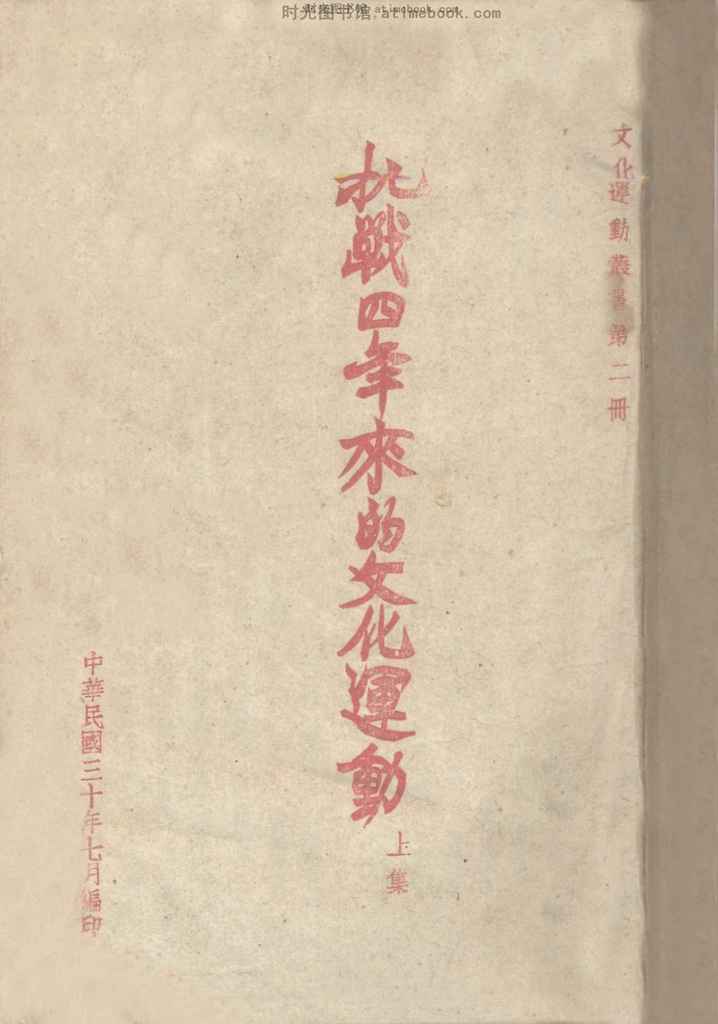 时光图书馆.atimebook.com
文化運動叢書第二冊
抗戰四年來的文化運動
上集
中華民國三十年七月編印